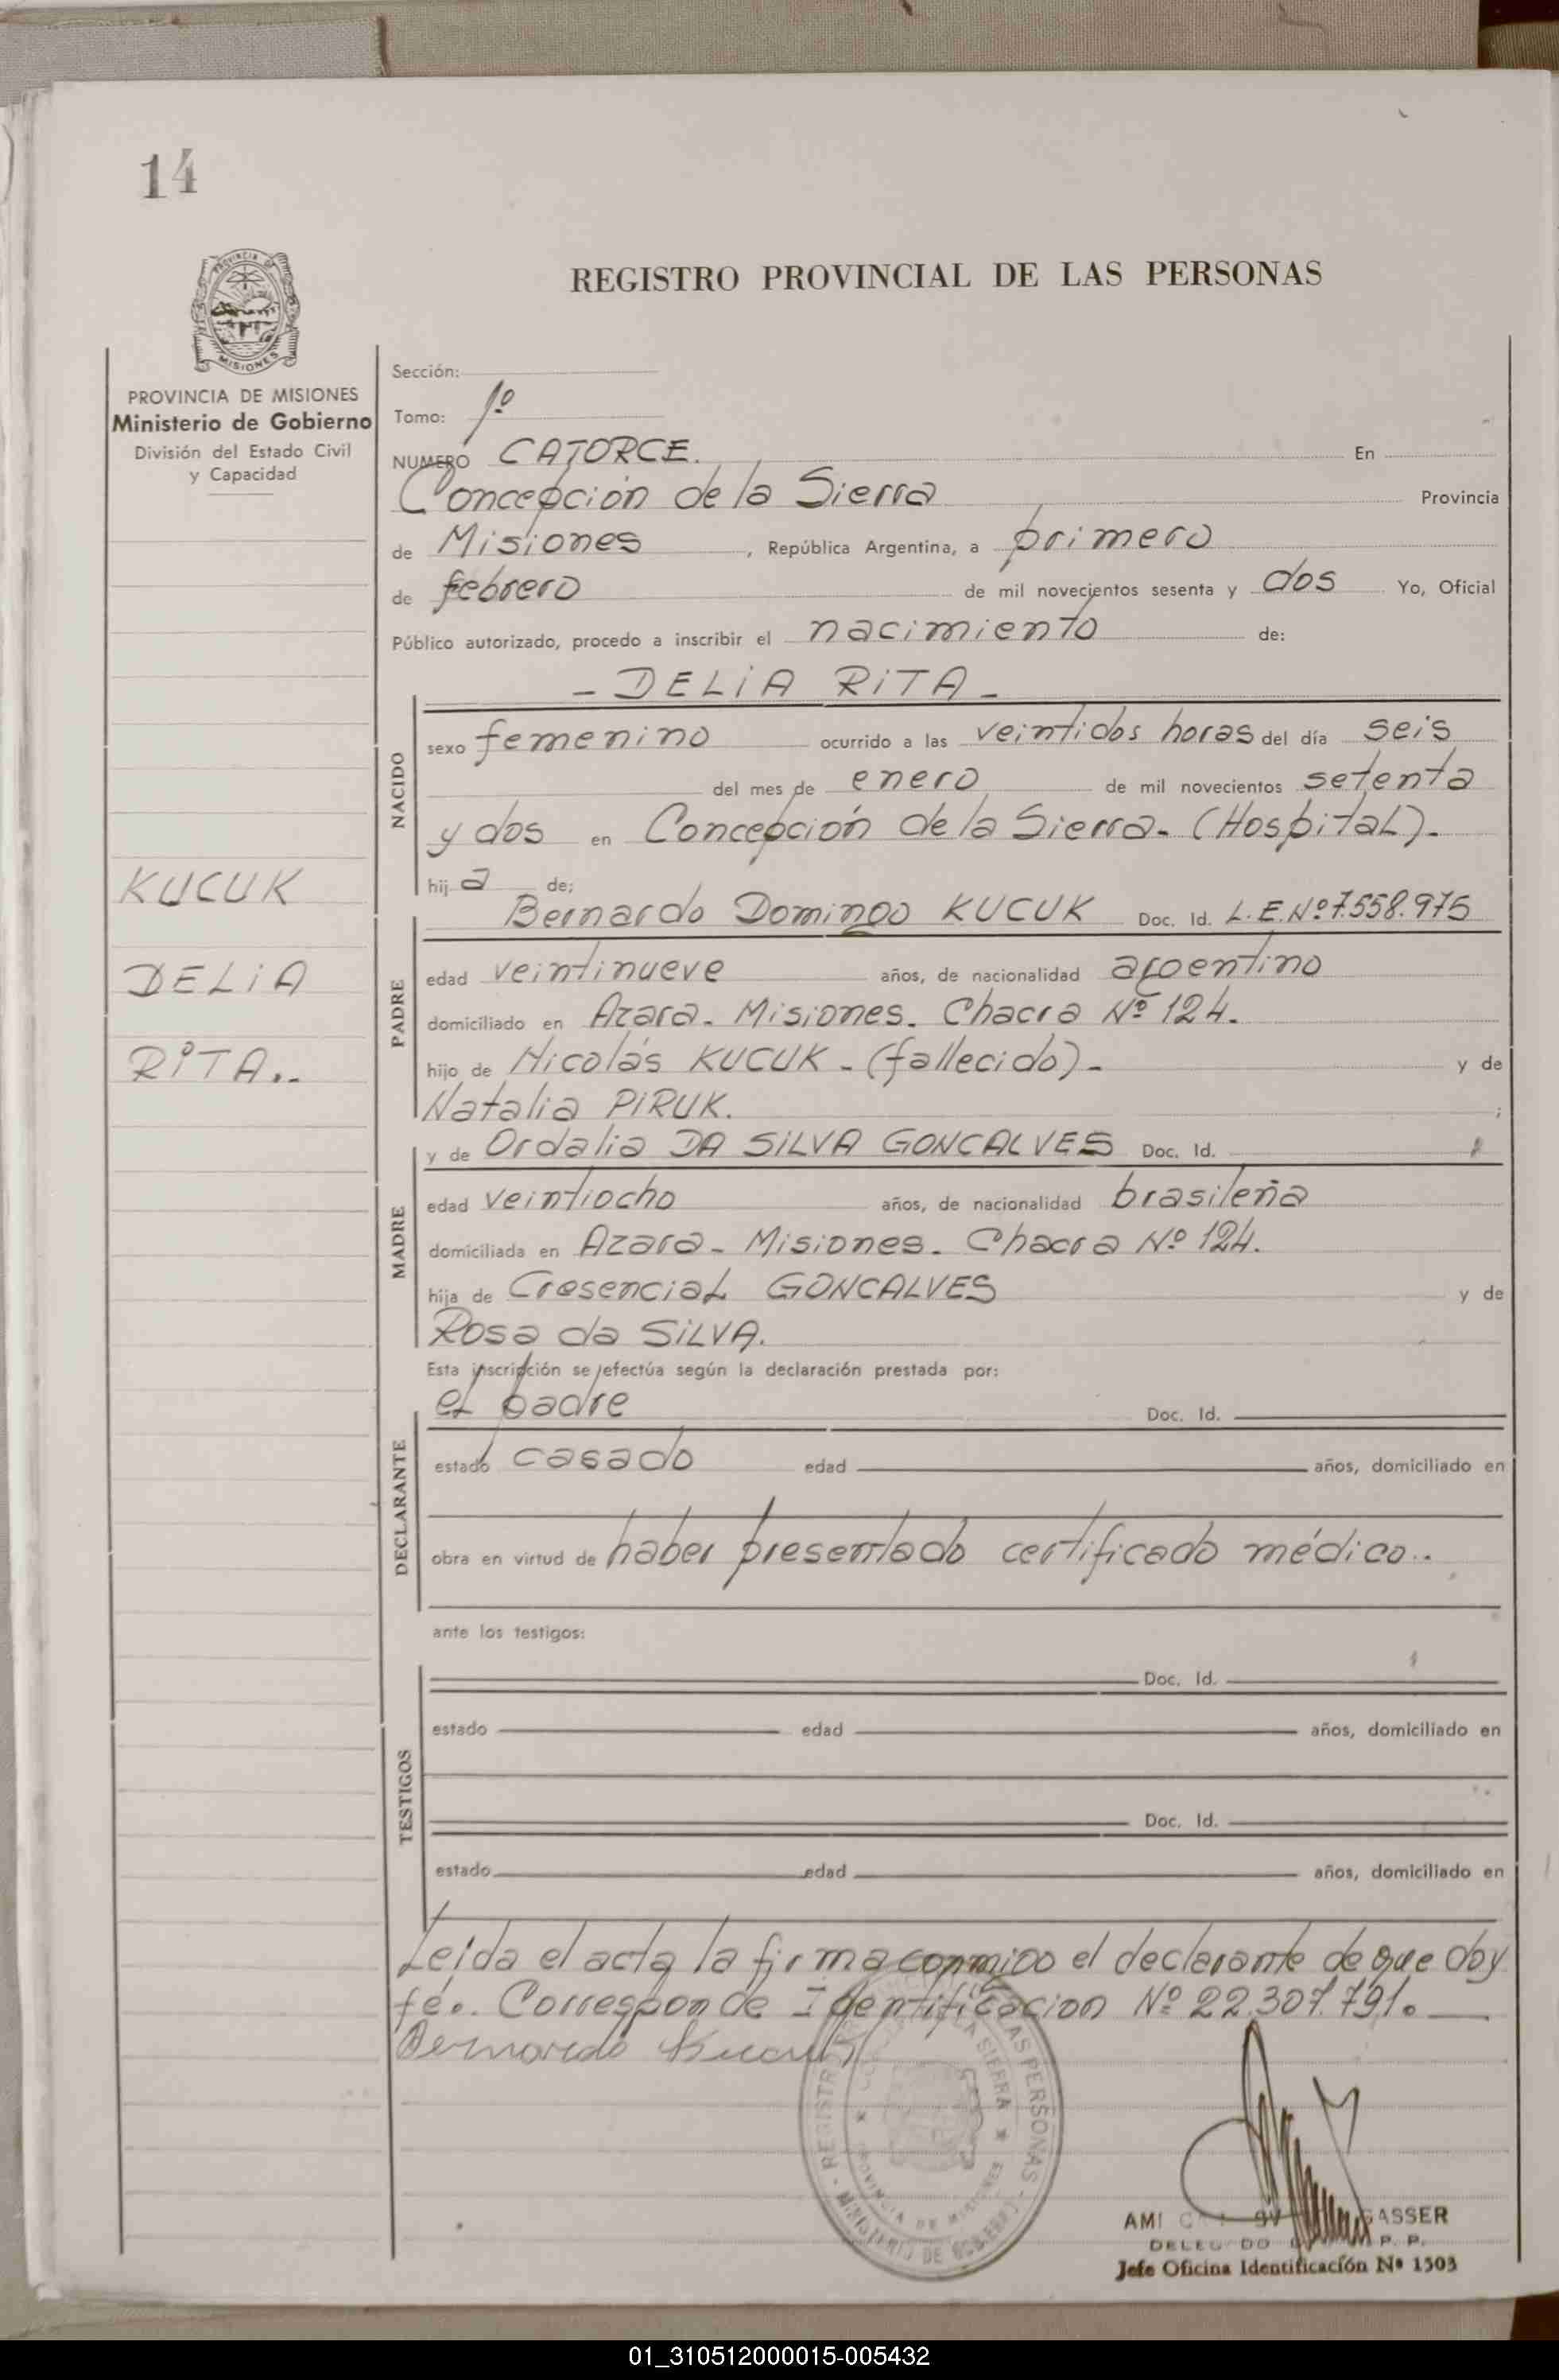 14
REGISTRO PROVINCIAL DE LAS PERSONAS
PROVINCIA DE MISIONES
Ministerio de Gobierno
División del Estado Civil
y Capacidad
KUCUK
DELIA
RITA.-
Sección:
Tomo: 1º
NUMERO CATORCE. En
Concepción de la Sierra Provincia
de Misiones, República Argentina, a primero
de febrero de mil novecientos sesenta y dos Yo, Oficial
Público autorizado, procedo a inscribir el nacimiento de:
- DELIA RITA -
NACIDO
sexo femenino ocurrido a las veintidos horas del día seis
del mes de enero de mil novecientos setenta
y dos en Concepción de la Sierra. (Hospital).
hija de;
Bernardo Domingo KUCUK Doc. Id. L.E.Nº 7.558.975
PADRE
edad veintinueve años, de nacionalidad argentino
domiciliado en Azara. Misiones. Chacra Nº 124.
hijo de Nicolás KUCUK - (fallecido) - y de
Natalia PIRUK. ;
y de Ordalia DA SILVA GONCALVES Doc. Id.
MADRE
edad veintiocho años, de nacionalidad brasileña
domiciliada en Azara. Misiones. Chacra Nº 124.
hija de Cresencial GONCALVES y de
Rosa da SILVA.
Esta inscripción se efectúa según la declaración prestada por:
DECLARANTE
el padre Doc. Id.
estado casado edad años, domiciliado en
obra en virtud de haber presentado certificado médico..
ante los testigos:
TESTIGOS
Doc. Id.
estado edad años, domiciliado en
Doc. Id.
estado edad años, domiciliado en
Leída el acta la firma conmigo el declarante de que doy
fé.. Corresponde Identificacion Nº 22.307.791.
Bernardo Kucuk
REGISTRO LAS PERSONAS - MINISTERIO DE GOBIERNO
LA SIERRA ★ PROVINCIA DE MISIONES ★
GASSER
P. P.
Jefe Oficina Identificación Nº 1503
01_310512000015-005432